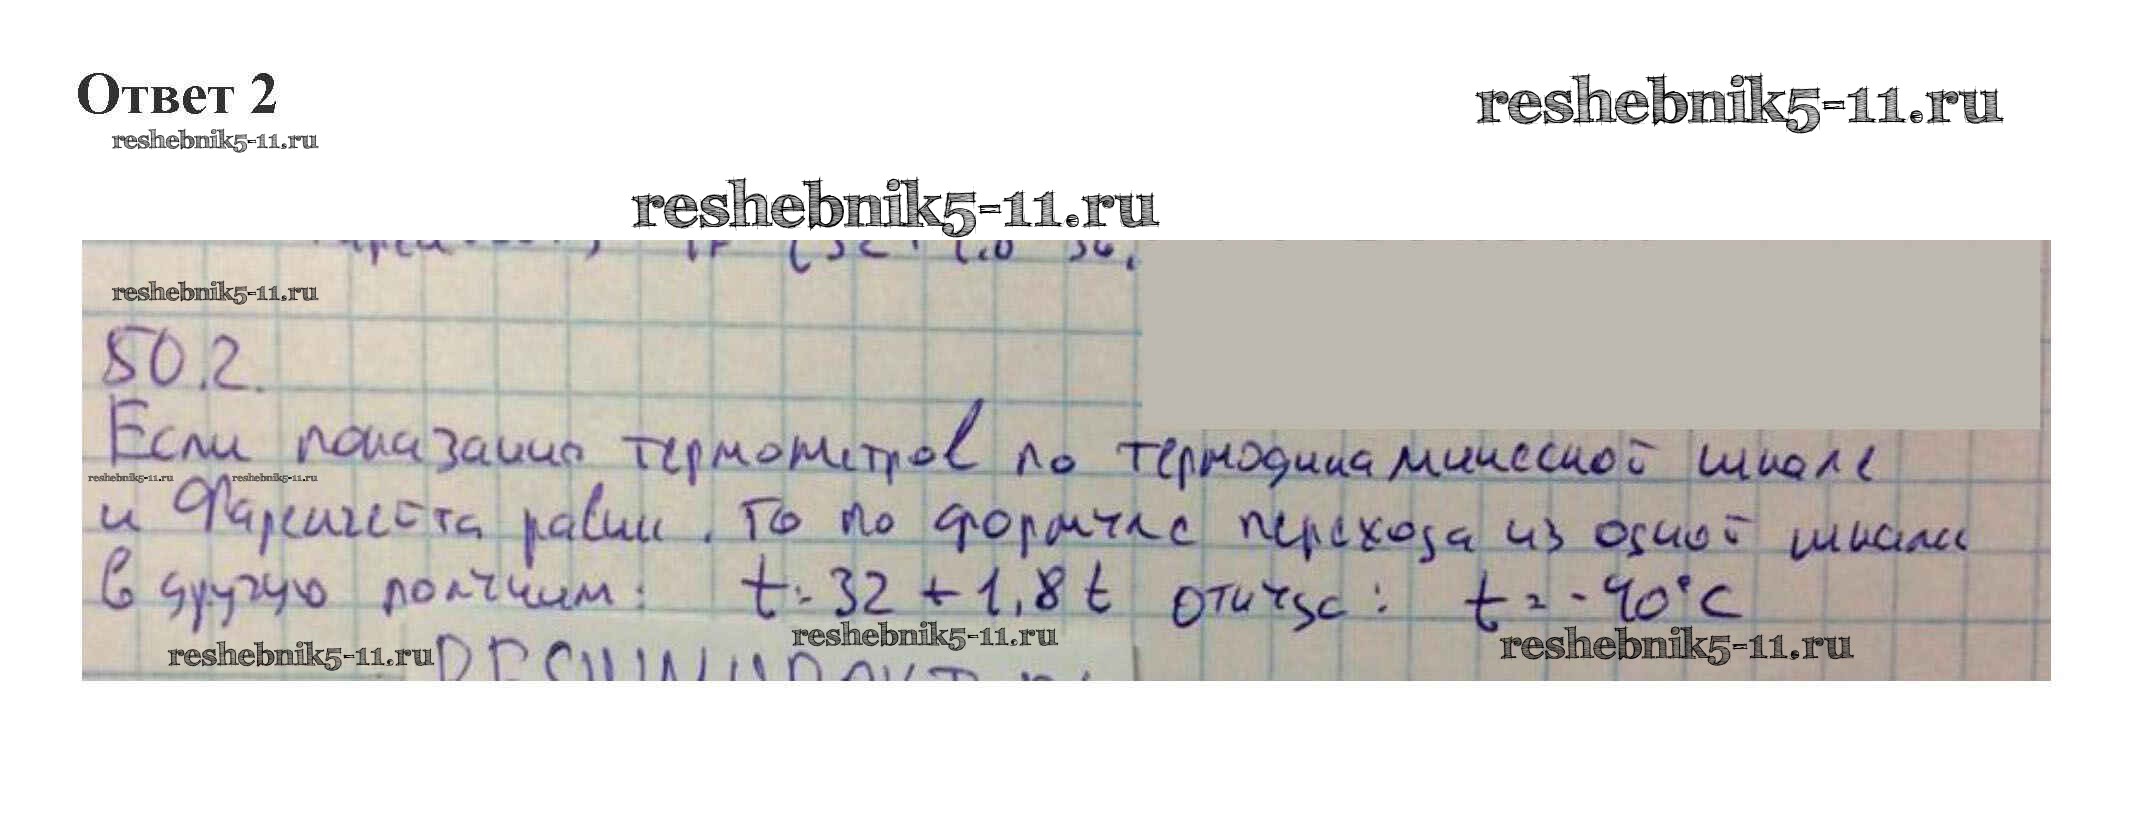 Ответ 2
reshebnik5-11.ru
reshebnik5-11.ru
reshebnik5-11.ru
reshebnik5-11.ru
50.2.
Если показания термометров по термодинамической шкале
reshebnik5-11.ru reshebnik5-11.ru
и Фаренгейта равны, то по формуле перехода из одной шкалы
в другую получим: t = 32 + 1,8 t откуда: t = -40°C
reshebnik5-11.ru
reshebnik5-11.ru
reshebnik5-11.ru